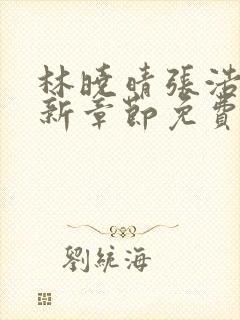 林曉晴張浩
新章節免費
劉統海